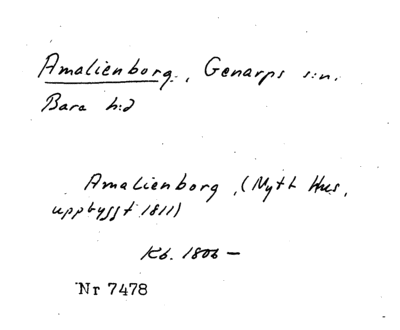 Amalienborg, Genarps s:n.
Bara h:d
Amalienborg, (Nytt Hus,
uppbyggt 1811)
Kb. 1806 —
Nr 7478